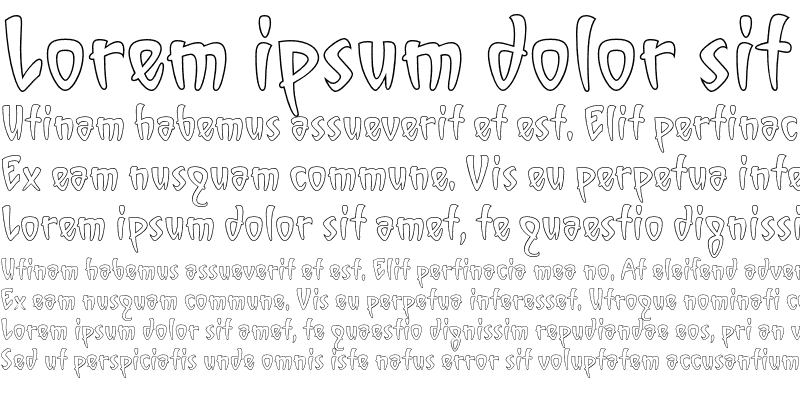 Lorem ipsum dolor sit
Utinam habemus assueverit et est. Elit pertinac
Ex eam nusquam commune. Vis eu perpetua inte
Lorem ipsum dolor sit amet, te quaestio dignissi
Utinam habemus assueverit et est. Elit pertinacia mea no. At eleifend adver
Ex eam nusquam commune. Vis eu perpetua interesset. Utroque nominati co
Lorem ipsum dolor sit amet, te quaestio dignissim repudiandae eos, pri an v
Sed ut perspiciatis unde omnis iste natus error sit voluptatem accusantium